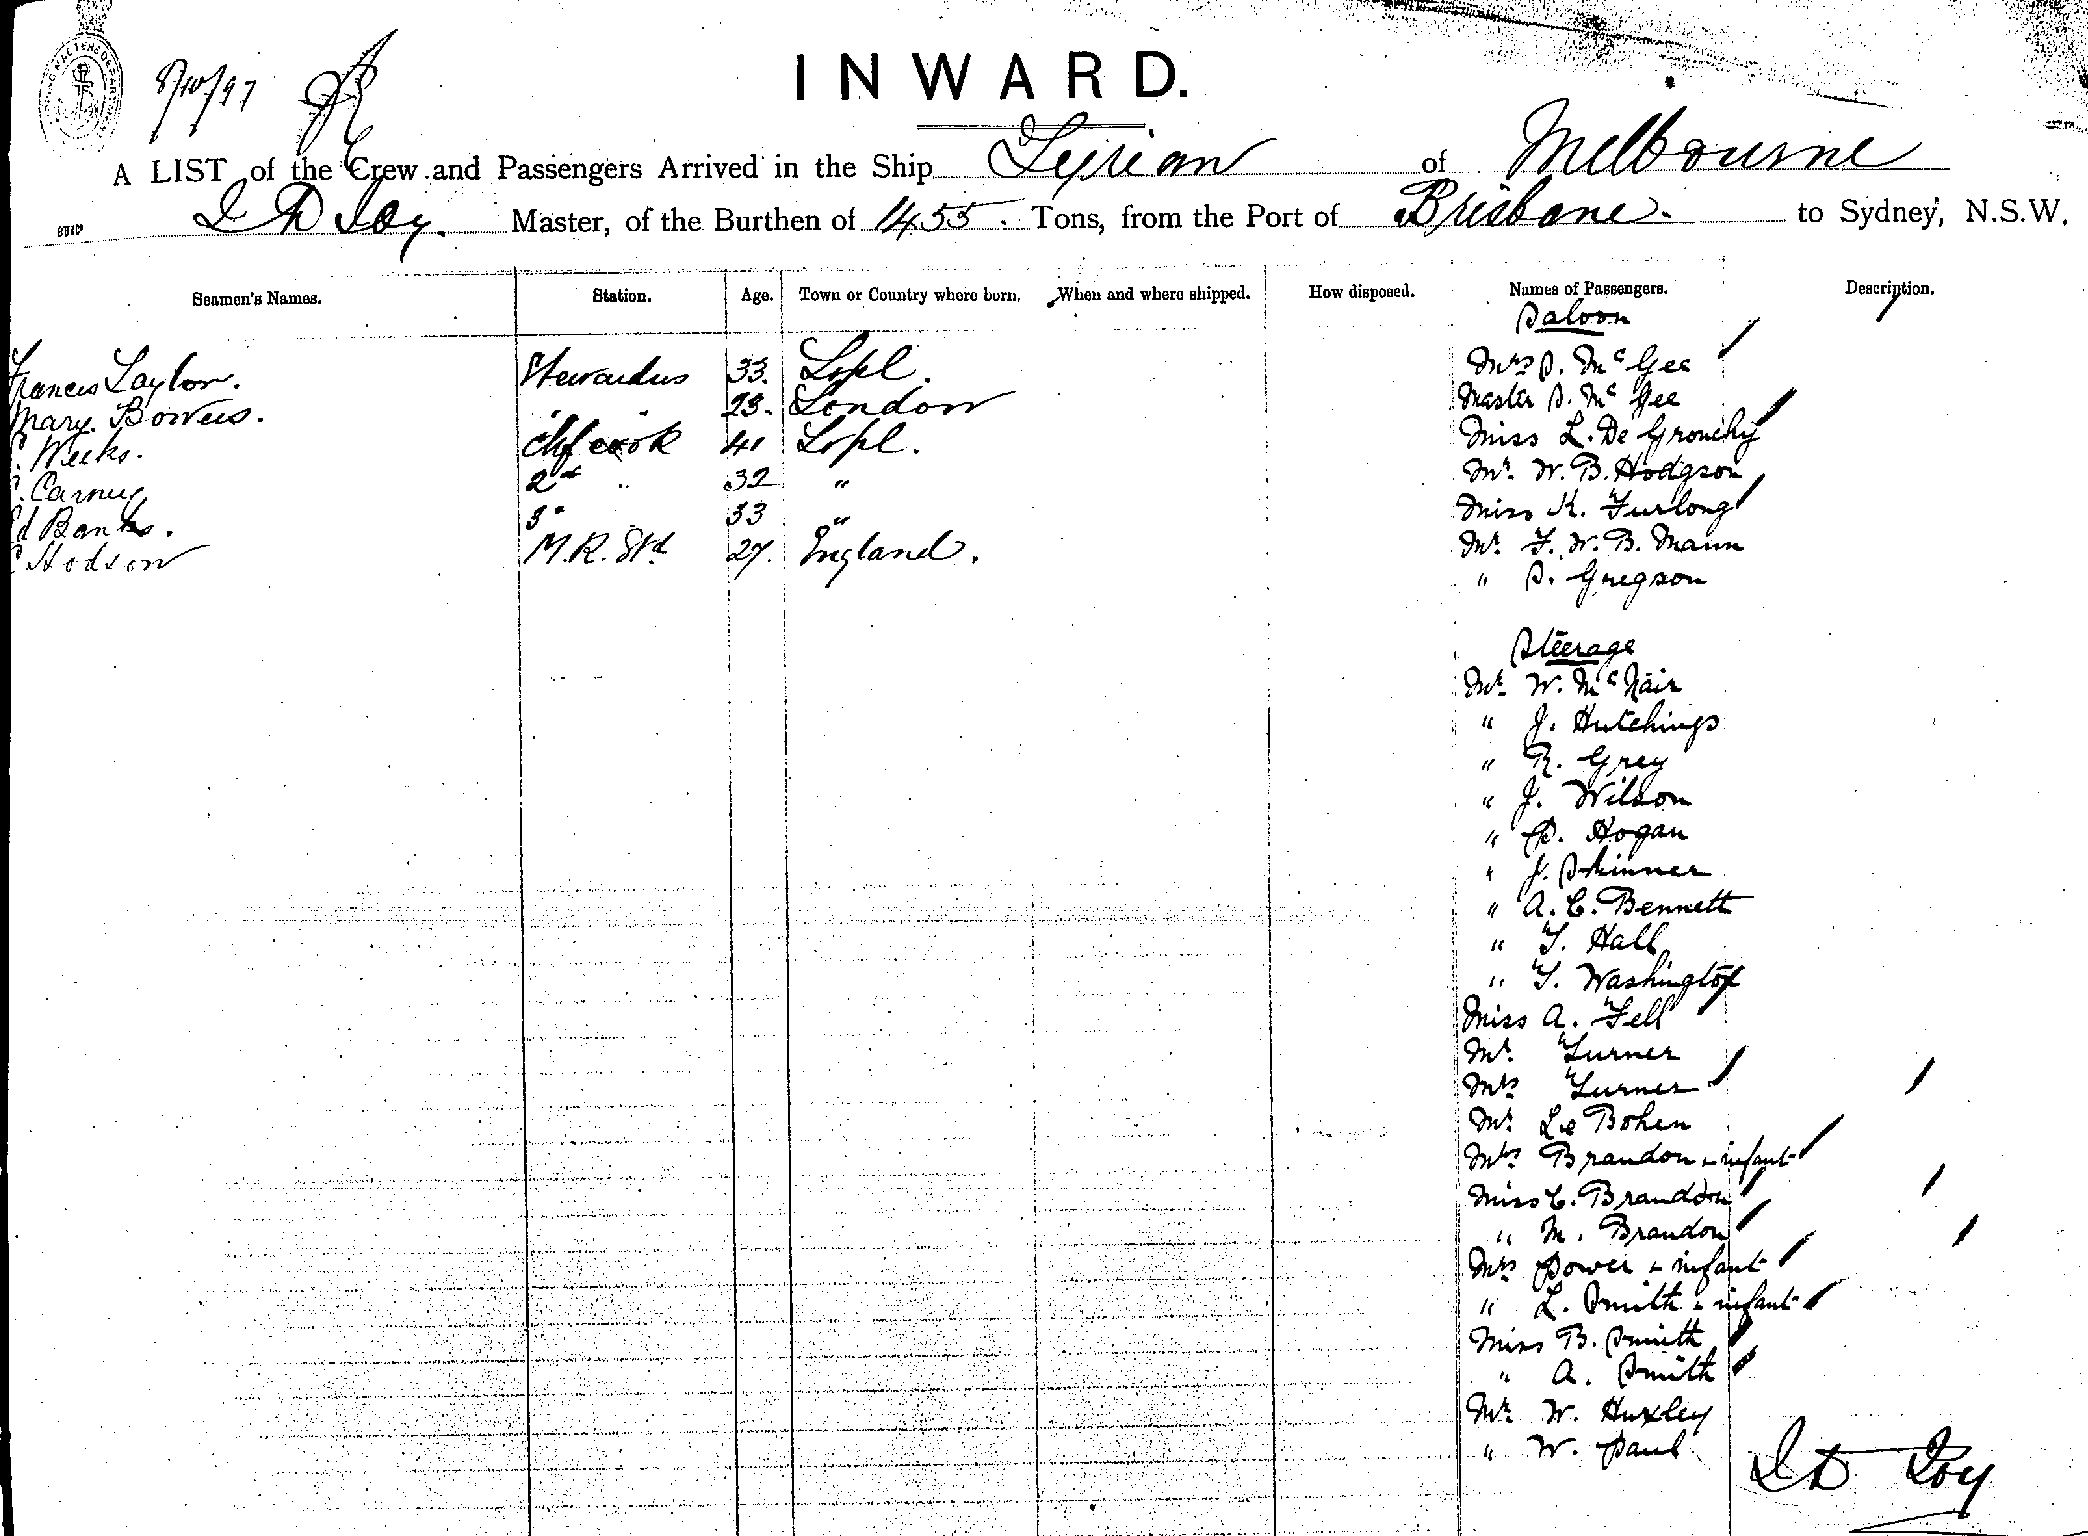 8/10/97
INWARD.
A LIST of the Crew and Passengers Arrived in the Ship Tyrian of Melbourne
Master, of the Burthen of 1455. Tons, from the Port of Brisbane. to Sydney, N.S.W.
Seamen's Names. Station. Age. Town or Country where born. When and where shipped. How disposed. Names of Passengers. Description.
Saloon
Frances Taylor. Stewardess 33. Lpl. Mrs S. McGee
Mary Bowers. " " 23. London Master S. McGee
Weeks. Chf cook 41 Lpl. Miss L. De Grouchy
Carney 2d " 32 " Mr. W. B. Hodgson
Ed Banks. 3d 33 " Miss K. Furlong
Hodson M.R. Std 27. England. Mr. F. W. B. Mann
" S. Gregson
Steerage
Mr. W. McNair
" J. Hutchings
" R. Grey
" J. Wilson
" P. Hogan
" J. Skinner
" A. C. Bennett
" T. Hall
" T. Washington
Miss A. Fell
Mr. Turner
Mrs Turner
Mr. Le Bohen
Mrs Brandon & infant
Miss C. Brandon
" M. Brandon
Mrs Power & infant
" L. Smith & infant
Miss B. Smith
" A. Smith
Mr. W. Huxley
" W. Paul